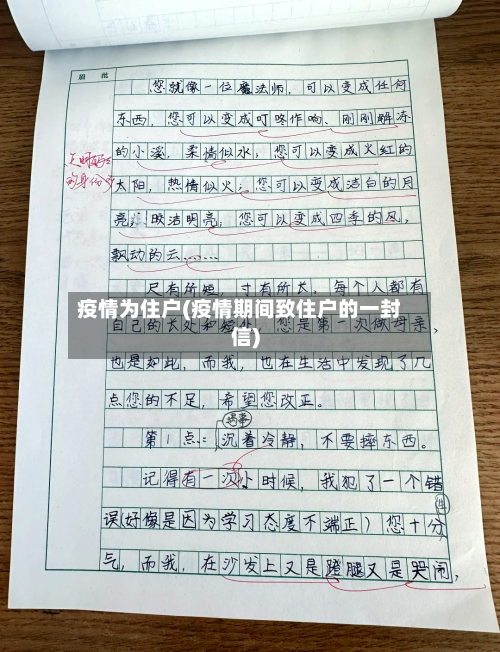 眉 批
您就像一位魔法师，可以变成任何
东西，您可以变成叮咚作响、刚刚解冻
的小溪，柔情似水；您可以变成火红的
太阳，热情似火；您可以变成洁白的月
亮；皎洁明亮；您可以变成四季的风，
飘动的云……
尺有所短，寸有所长，每个人都有
疫情为住户(疫情期间致住户的一封
信)
自己的长处和短处，您是第一次做母亲，
也是如此，而我，也在生活中发现了几
点您的不足，希望您改正。
遇事
第1点：沉着冷静，不要摔东西。
记得有一次小时候，我犯了一个错
误(好像是因为学习态度不端正)您十分
生
气，而我，在沙发上又是蹬腿又是哭闹，